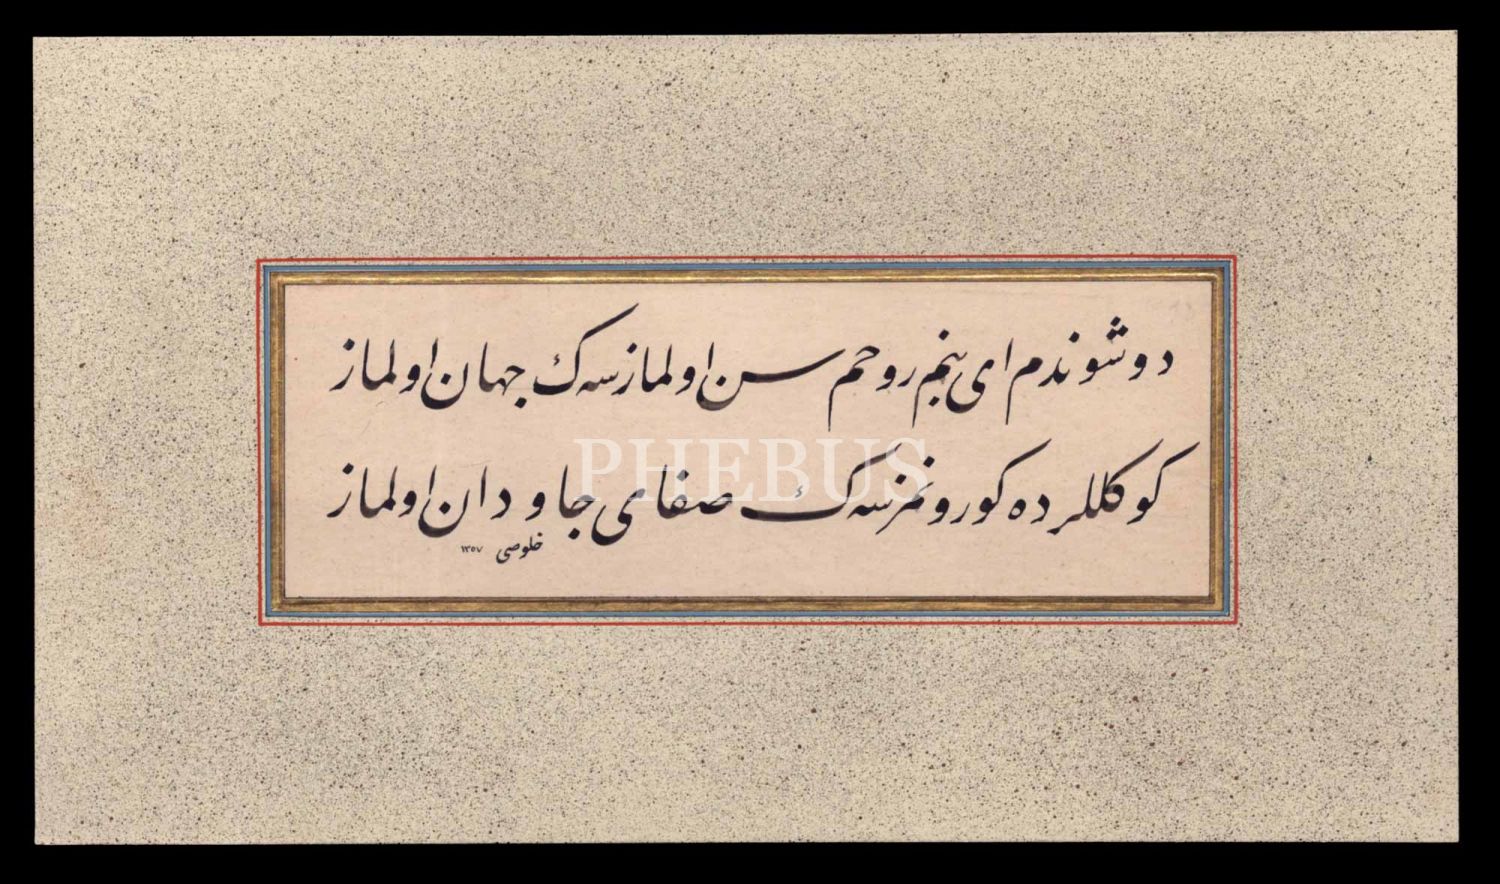 دوشوندم ای بنم روحم سن اولمازسه ك جهان اولماز
كوكللرده كورونمزسه ك صفای جاودان اولماز
خلوصی ١٣٥٧
PHEBUS